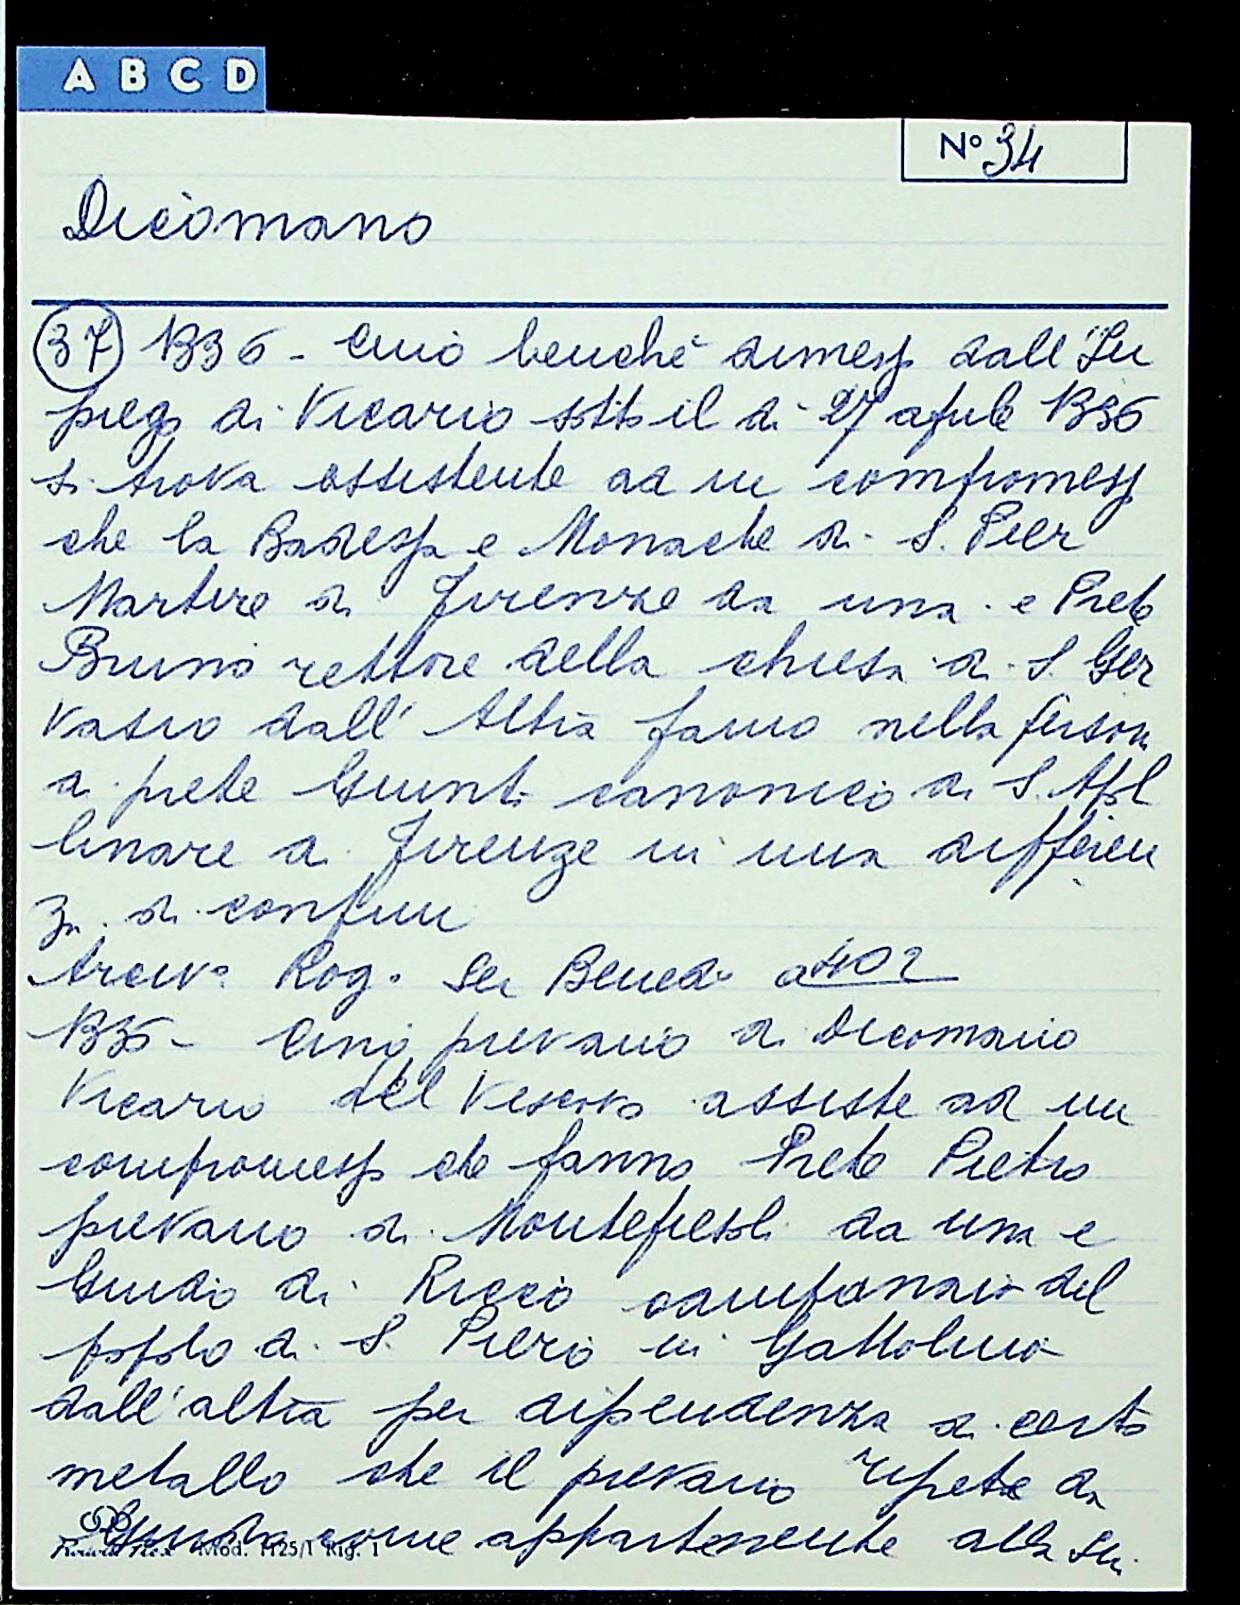 A B C D
Nº 34
Dicomano
37 1336 - Cino benchè dimesso dall'Im
piego di Vicario sotto il di 27 aprile 1336
si trova assistente ad un compromesso
che la Badessa e Monache di S. Pier
Martire di Firenze da una e Prete
Bruno rettore della chiesa di S. Ger
vasio dall'Altra fanno nella person
di prete Giunti canonico di S. Apol
linare di Firenze in una differen
za di confini
Arciv. Rog. Ser Bened. a 402
1336 - Cino pievano di Dicomano
Vicario del Vescovo assiste ad un
compromesso che fanno Prete Pietro
pievano di Montefiesoli da una e
Guido di Ricco campanaio del
popolo di S. Piero in Gattolino
dall'altra per dipendenza di certo
metallo che il pievano ripete da
come appartenente alla su
Mod. 1125/1 Rig. 1